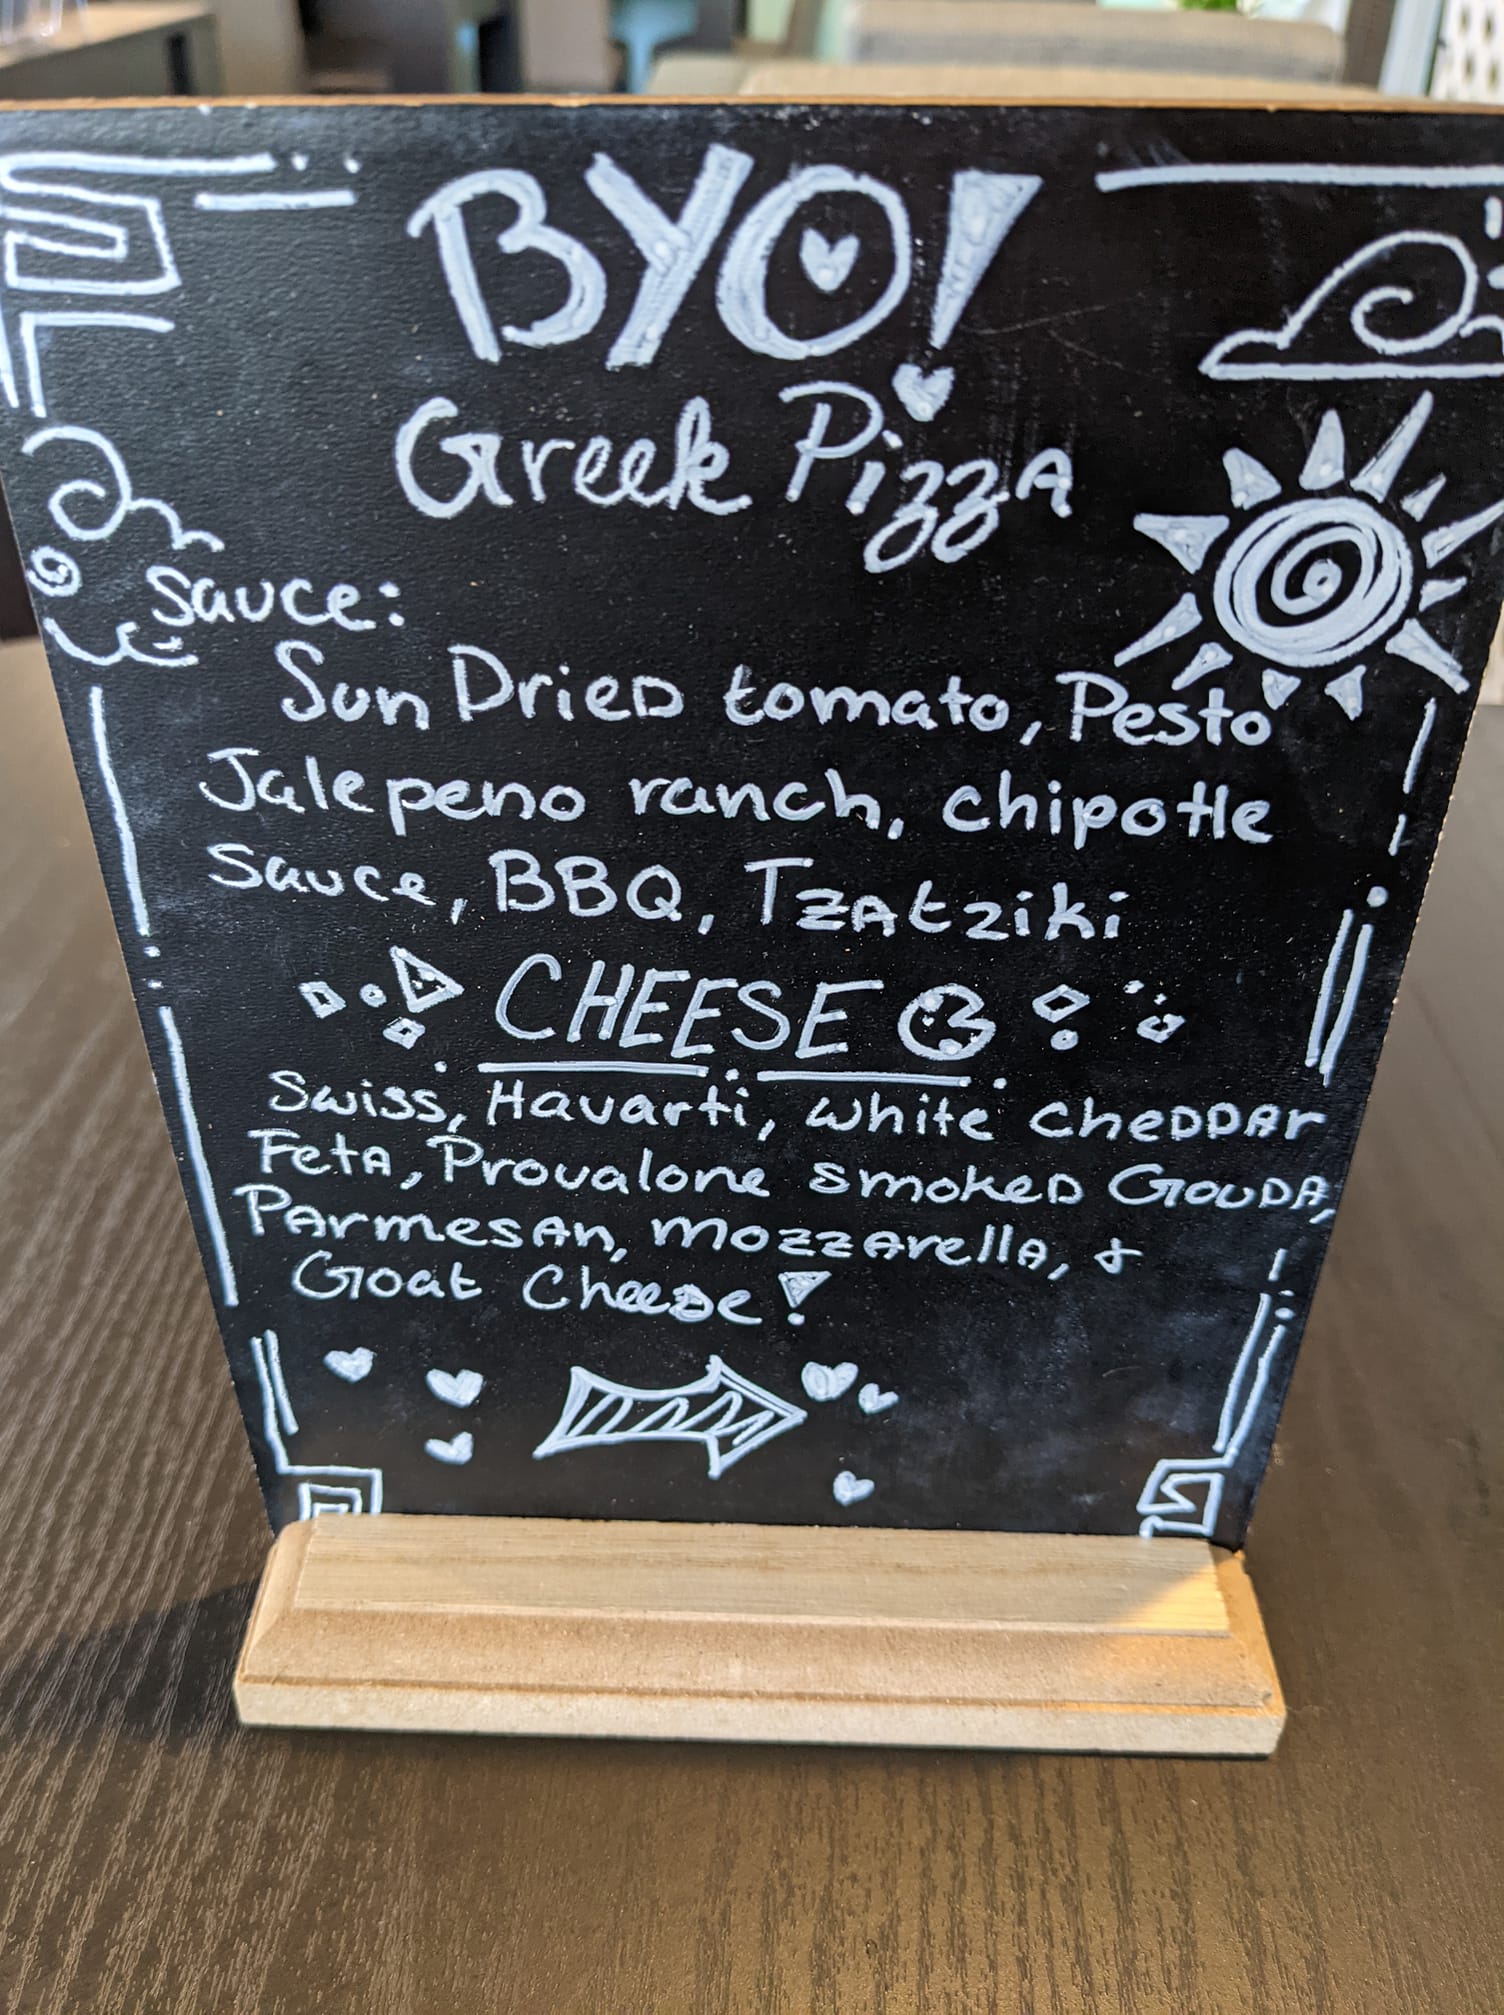 BYO!
Greek Pizza
Sauce:
Sun Dried tomato, Pesto
Jalepeno ranch, chipotle
Sauce, BBQ, Tzatziki
CHEESE
Swiss, Havarti, white cheddar
Feta, Provalone smoked Gouda,
Parmesan, mozzarella, &
Goat Cheese!